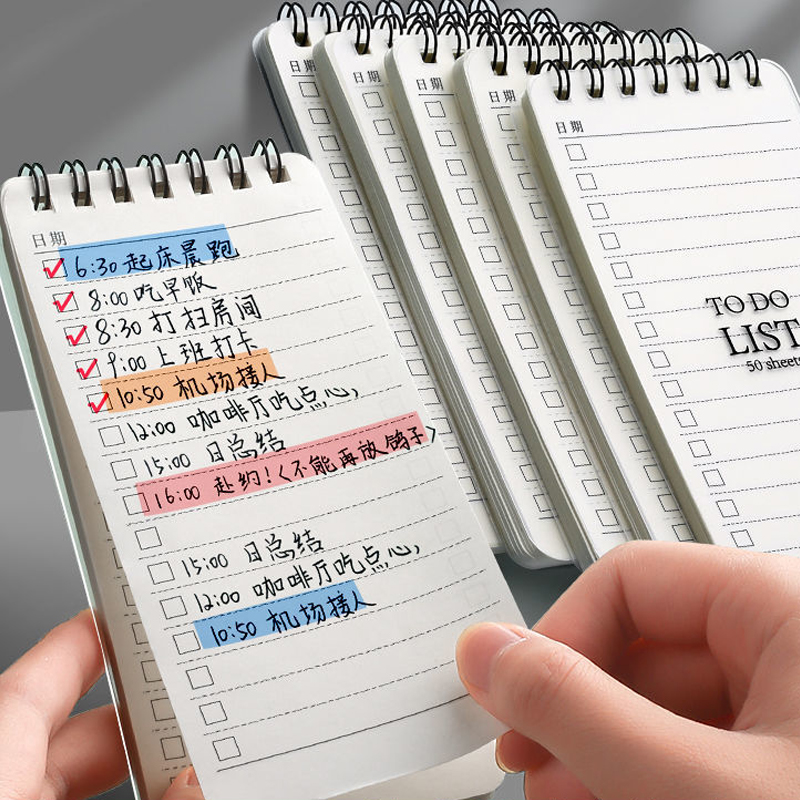 日期
日期
日期
日期
日期
TO DO
LIST
50 sheets
日期
6:30 起床晨跑
8:00 吃早饭
8:30 打扫房间
9:00 上班打卡
10:50 机场接人
12:00 咖啡厅吃点心,
15:00 日总结
16:00 赴约!<不能再放鸽子>
15:00 日总结
12:00 咖啡厅吃点心,
10:50 机场接人